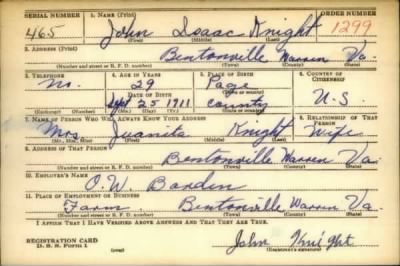 SERIAL NUMBER 1. NAME (Print) ORDER NUMBER
465 John Isaac Knight 1299
(First) (Middle) (Last)
2. ADDRESS (Print)
Bentonville Warren Va.
(Number and street or R. F. D. number) (Town) (County) (State)
3. TELEPHONE 4. AGE IN YEARS 5. PLACE OF BIRTH 6. COUNTRY OF CITIZENSHIP
No. 29 Page
DATE OF BIRTH
Sept 25 1911 County U.S.
(Exchange) (Number) (Mo.) (Day) (Yr.) (State or country)
7. NAME OF PERSON WHO WILL ALWAYS KNOW YOUR ADDRESS 8. RELATIONSHIP OF THAT PERSON
Mrs. Juanita Knight Wife
(Mr., Mrs., Miss) (First) (Middle) (Last)
9. ADDRESS OF THAT PERSON
Bentonville Warren Va.
(Number and street or R. F. D. number) (Town) (County) (State)
10. EMPLOYER'S NAME
O. W. Borden
11. PLACE OF EMPLOYMENT OR BUSINESS
Farm Bentonville Warren Va.
(Number and street or R. F. D. number) (Town) (County) (State)
I AFFIRM THAT I HAVE VERIFIED ABOVE ANSWERS AND THAT THEY ARE TRUE.
REGISTRATION CARD
D. S. S. Form 1
John Knight
(Registrant's signature)